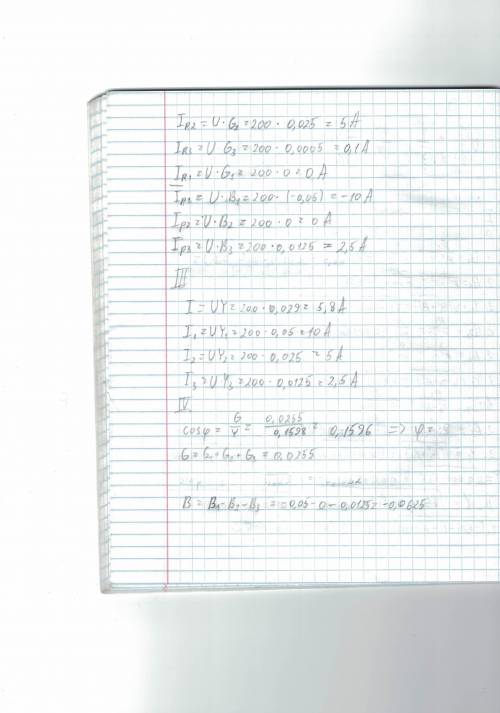 I_R2 = U·G2 = 200 · 0,025 = 5 A
I_R3 = U G3 = 200 · 0.0005 = 0,1 A
I_R1 = U·G1 = 200 · 0 = 0 A
I_P1 = U·B1 = 200 · (-0,05) = -10 A
I_P2 = U·B2 = 200 · 0 = 0 A
I_P3 = U·B3 = 200 · 0,0125 = 2,5 A
III
I = UY = 200 · 0,029 = 5,8 A
I1 = UY1 = 200 · 0,05 = 10 A
I2 = UY2 = 200 · 0,025 = 5 A
I3 = U·Y3 = 200 · 0,0125 = 2,5 A
IV
cosφ = G/Y = 0,0255/0,1598 = 0,1596 => φ =
G = G1 + G2 + G3 = 0,0255
B = B1 - B2 - B3 = -0,05 - 0 - 0,0125 = -0,0625